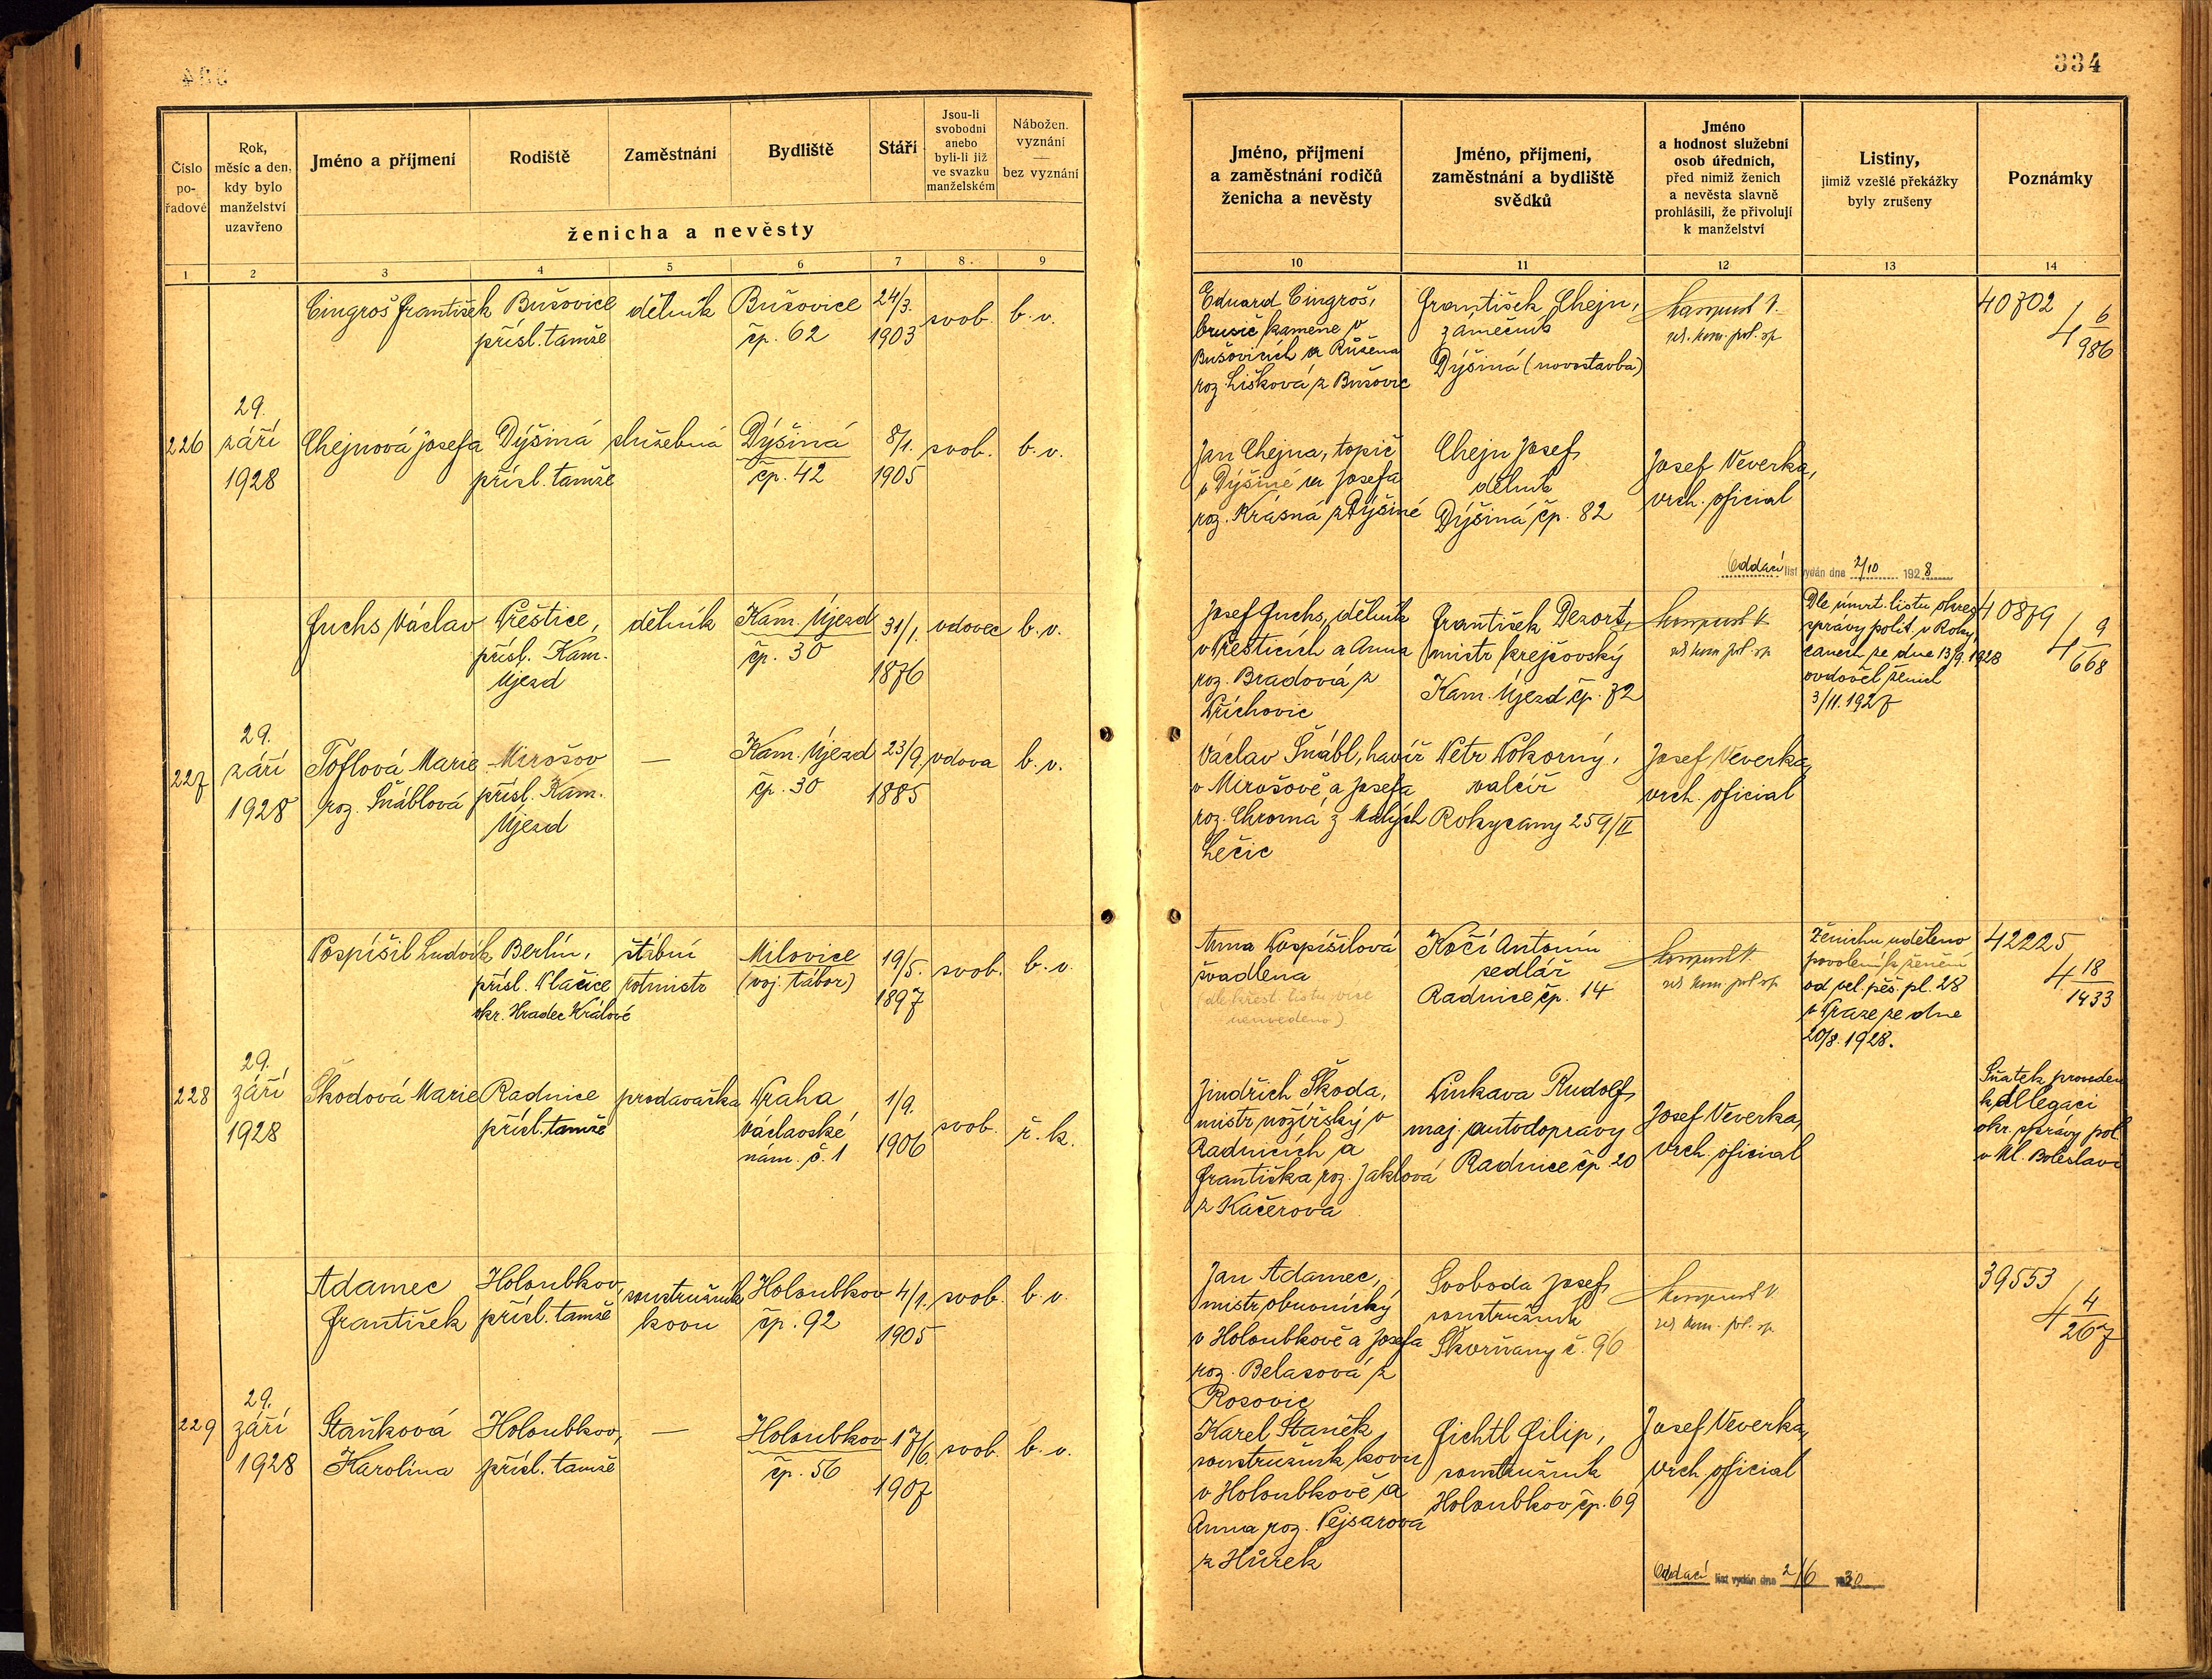 334
Číslo
po-
řadové
Rok,
měsíc a den,
kdy bylo
manželství
uzavřeno
Jméno a příjmení
Rodiště
Zaměstnání
Bydliště
Stáří
Jsou-li
svobodni
anebo
byli-li již
ve svazku
manželském
Nábožen.
vyznání
—
bez vyznání
ženicha a nevěsty
1 2 3 4 5 6 7 8 9
Cingroš František
Bušovice
přísl. tamže
dělník
Bušovice
čp. 62
24/3.
1903
svob.
b. v.
226
29.
září
1928
Chejnová Josefa
Dýšiná
přísl. tamže
služebná
Dýšiná
čp. 42
8/1.
1905
svob.
b. v.
Fuchs Václav
Přeštice,
přísl. Kam.
Újezd
dělník
Kam. Újezd
čp. 30
31/1.
1876
vdovec
b. v.
227
29.
září
1928
Toflová Marie
roz. Šnáblová
Mirošov
přísl. Kam.
Újezd
—
Kam. Újezd
čp. 30
23/9.
1885
vdova
b. v.
Pospíšil Ludvík
Berlín,
přísl. Plačice
okr. Hradec Králové
štábní
rotmistr
Milovice
(voj. tábor)
19/5.
1897
svob.
b. v.
228
29.
září
1928
Škodová Marie
Radnice
přísl. tamže
prodavačka
Praha
Václavské
nám. č. 1
1/9.
1906
svob.
ř. k.
Adamec
František
Holoubkov,
přísl. tamže
soustružník
kovu
Holoubkov
čp. 92
4/1.
1905
svob.
b. v.
229
29.
září
1928
Staňková
Karolina
Holoubkov,
přísl. tamže
—
Holoubkov
čp. 56
17/6.
1907
svob.
b. v.
334
Jméno, příjmení
a zaměstnání rodičů
ženicha a nevěsty
Jméno, příjmení,
zaměstnání a bydliště
svědků
Jméno
a hodnost služební
osob úředních,
před nimiž ženich
a nevěsta slavně
prohlásili, že přivolují
k manželství
Listiny,
jimiž vzešlé překážky
byly zrušeny
Poznámky
10 11 12 13 14
Eduard Cingroš,
brusič kamene v
Bušovicích a Růžena
roz. Lišková z Bušovic
František Chejn,
zámečník
Dýšiná (novostavba)
40702
4 6/986
Jan Chejna, topič
v Dýšině a Josefa
roz. Krásná z Dýšiné
Chejn Josef,
dělník
Dýšiná čp. 82
Josef Veverka,
vrch. oficial
Oddací list vydán dne 2/10 1928
Josef Fuchs, dělník
v Přešticích a Anna
roz. Bradová z
Příchovic
František Dezort,
mistr krejčovský
Kam. Újezd čp. 72
Dle úmrt. listu okres.
správy polit. v Roky-
canech ze dne 13/9. 1928
ovdověl ženich
3/11. 1927
40879
4 9/668
Václav Šnábl, havíř
v Mirošově a Josefa
roz. Chromá z Malých
Lečic
Petr Pokorný,
valcíř
Rokycany 259/II
Josef Veverka,
vrch. oficial
Anna Pospíšilová
švadlena
(dle křest. listu více
neuvedeno)
Kočí Antonín
sedlář
Radnice čp. 14
Ženichu uděleno
povolení k ženění
od vel. pěš. pl. 28
v Praze ze dne
20/8. 1928.
42225
4 18/1433
Jindřich Škoda,
mistr nožířský v
Radnicích a
Františka roz. Jaklová
z Kačerova
Pinkava Rudolf,
maj. autodopravy
Radnice čp. 20
Josef Veverka,
vrch. oficial
Sňatek proveden
k delegaci
okr. správy pol.
v Ml. Boleslavi
Jan Adamec,
mistr obuvnický
v Holoubkově a Josefa
roz. Belasová z
Rosovic
Svoboda Josef,
soustružník
Škvrňany č. 96
39553
4 4/267
Karel Staněk
soustružník kovu
v Holoubkově a
Anna roz. Pejsarová
z Hůrek
Fichtl Filip,
soustružník
Holoubkov čp. 69
Josef Veverka,
vrch. oficial
Oddací list vydán dne 2/6 1930